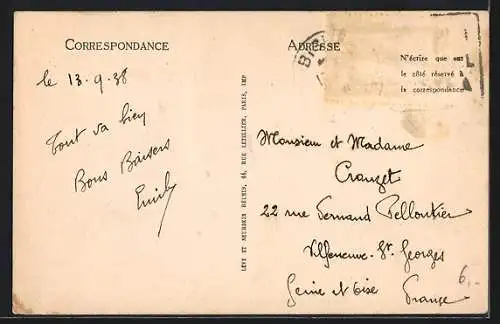 CORRESPONDANCE
le 13-9-38
Tout va bien
Bons Baisers
Emily
LÉVY ET NEURDEIN RÉUNIS, 44, RUE LETELLIER, PARIS, IMP
ADRESSE
N'écrire que sur
le côté réservé à
la correspondance
Monsieur et Madame
Crouzet
22 rue Fernand Pelloutier
Villeneuve-St Georges
Seine et Oise France
6,-